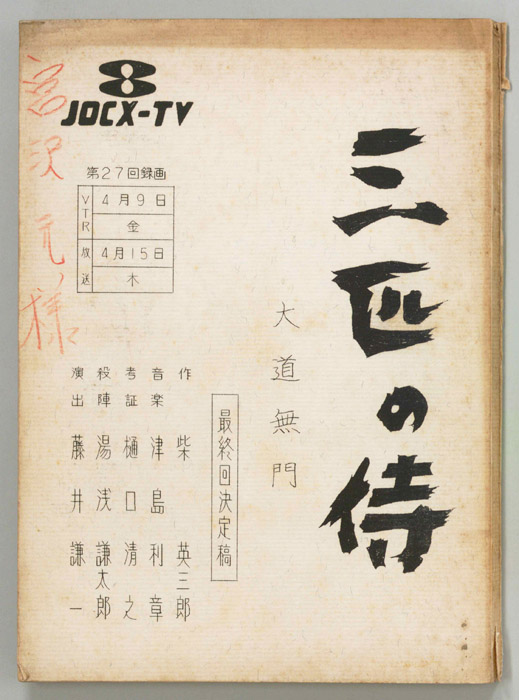 三匹の侍
大道無門
最終回決定稿
作 柴 英三郎
音楽 津島利章
考証 樋口清之
殺陣 湯浅謙太郎
演出 藤井謙一
JOCX-TV
第27回録画
VTR 4月9日
金
放送 4月15日
木
宮沢元様